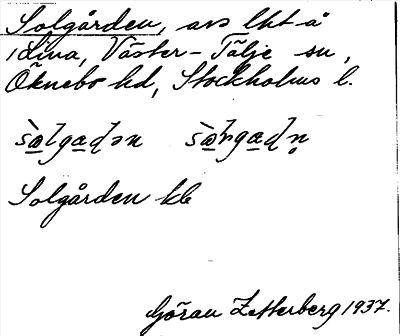 Solgården, avs lht å
Lina, Väster-Tälje sn,
Öknebo hd, Stockholms l.
Solgården kb
Göran Zetterberg 1937.